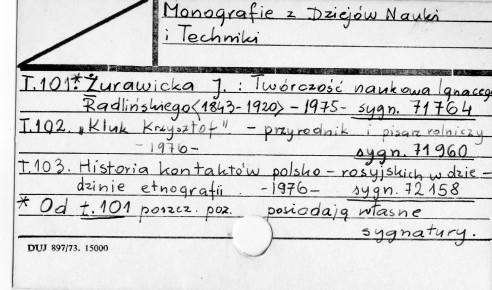 Monografie z Dziejów Nauki
i Techniki
T.101.* Żurawicka J. : Twórczość naukowa Ignacego
Radlińskiego (1843-1920) - 1975 - sygn. 71764
T.102. „Kluk Krzysztof" - przyrodnik i pisarz rolniczy
- 1976 - sygn. 71960
T.103. Historia kontaktów polsko-rosyjskich w dzie-
dzinie etnografii. - 1976 - sygn. 72158
* Od t.101 poszcz. poz. posiadają własne
sygnatury.
DUJ 897/73. 15000